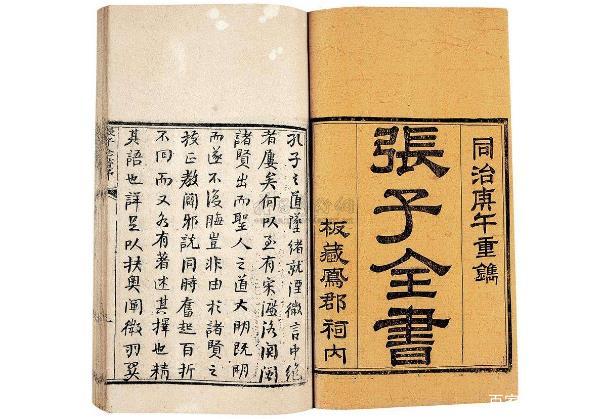 同治庚午重鐫
張子全書
板藏鳳郡祠内
孔子之道墜緒就湮微言中絕
者屢矣何以至有宋濂洛関閩
諸賢出而聖人之道大明既明
而遂不復晦豈非由於諸賢之
放正教闢邪説同時奮起百折
不回而又各有著述其擇也精
其語也詳足以扶輿闡微羽翼
張子全書序
百家